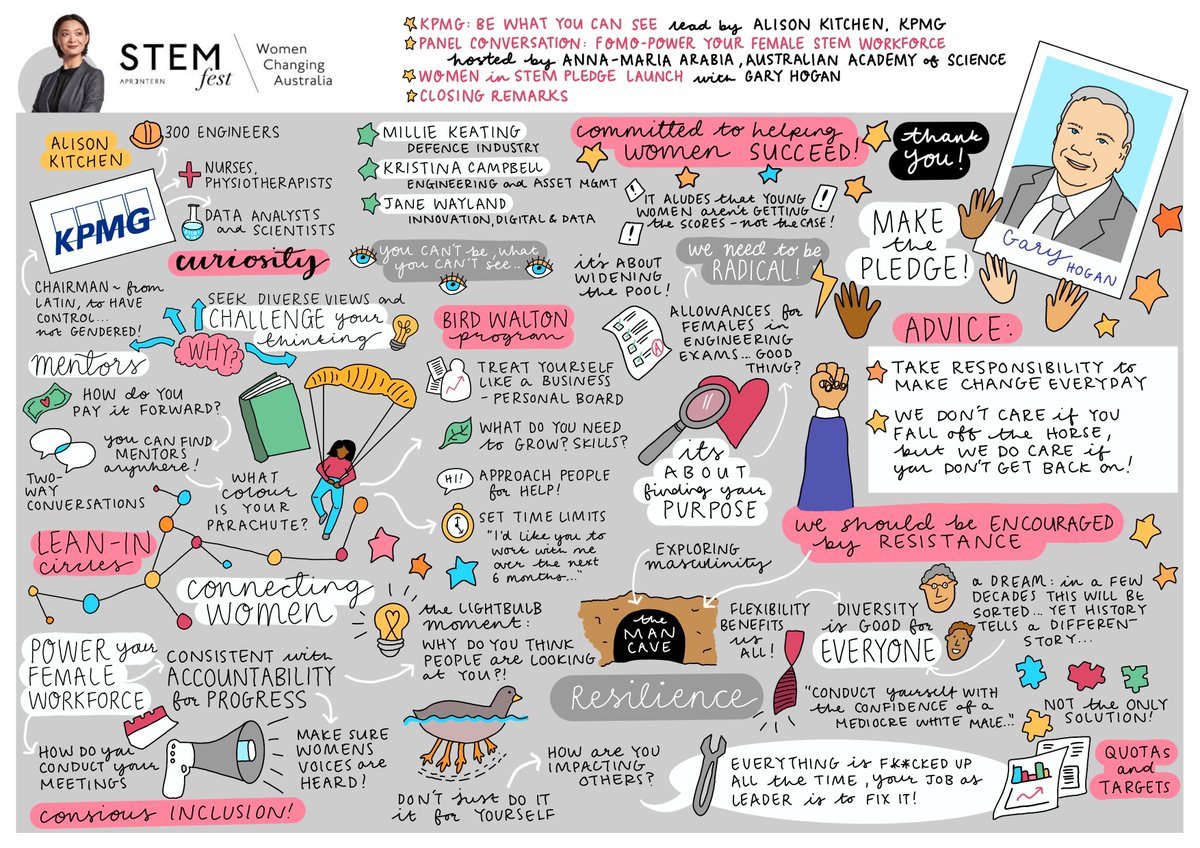 STEM
fest
APR3NTERN
Women
Changing
Australia
KPMG: BE WHAT YOU CAN SEE read by ALISON KITCHEN, KPMG
PANEL CONVERSATION: FOMO-POWER YOUR FEMALE STEM WORKFORCE
hosted by ANNA-MARIA ARABIA, AUSTRALIAN ACADEMY of SCIENCE
WOMEN in STEM PLEDGE LAUNCH with GARY HOGAN
CLOSING REMARKS
ALISON
KITCHEN
300 ENGINEERS
NURSES,
PHYSIOTHERAPISTS
DATA ANALYSTS
and SCIENTISTS
KPMG
curiosity
CHAIRMAN ~ from
LATIN, to HAVE
CONTROL...
not GENDERED!
SEEK DIVERSE VIEWS and
CHALLENGE your
thinking
WHY?
mentors
HOW do YOU
PAY it FORWARD?
you CAN FIND
MENTORS
anywhere!
TWO-
WAY
CONVERSATIONS
WHAT
colour
IS YOUR
PARACHUTE?
LEAN-IN
circles
connecting
WOMEN
POWER your
FEMALE
WORKFORCE
CONSISTENT with
ACCOUNTABILITY
for PROGRESS
HOW DO you
CONDUCT your
MEETINGS
MAKE SURE
WOMENS
VOICES are
HEARD!
consious INCLUSION!
MILLIE KEATING
DEFENCE INDUSTRY
KRISTINA CAMPBELL
ENGINEERING and ASSET MGMT
JANE WAYLAND
INNOVATION, DIGITAL & DATA
you CAN'T be, what
you CAN'T see...
BIRD WALTON
program
TREAT YOURSELF
LIKE A BUSINESS
- PERSONAL BOARD
WHAT DO YOU NEED
to GROW? SKILLS?
HI!
APPROACH PEOPLE
for HELP!
SET TIME LIMITS
"I'd like you to
work with me
over the next
6 months..."
the LIGHTBULB
moment:
WHY DO YOU THINK
PEOPLE are LOOKING
at YOU?!
DON'T just DO IT
it for YOURSELF
HOW are YOU
IMPACTING
OTHERS?
committed to helping
women SUCCEED!
IT ALUDES that YOUNG
WOMEN aren't GETTING
the SCORES - not the CASE!
it's ABOUT
WIDENING
the POOL!
we need to be
RADICAL!
A
ALLOWANCES for
FEMALES in
ENGINEERING
EXAMS... GOOD
THING?
its
ABOUT
finding your
PURPOSE
EXPLORING
masculinity
the
MAN
CAVE
FLEXIBILITY
BENEFITS
us
ALL!
Resilience
thank
you!
MAKE
the
PLEDGE!
Gary HOGAN
ADVICE:
TAKE RESPONSIBILITY to
MAKE CHANGE EVERYDAY
WE DON'T CARE if YOU
FALL off the HORSE,
but WE DO CARE if
you DON'T GET BACK on!
we should be ENCOURAGED
by RESISTANCE
DIVERSITY
is GOOD for
EVERYONE
a DREAM: in a FEW
DECADES THIS WILL BE
SORTED... YET HISTORY
TELLS a DIFFERENT
STORY...
"CONDUCT yourself WITH
the CONFIDENCE of a
MEDIOCRE WHITE MALE..."
NOT the ONLY
SOLUTION!
EVERYTHING is F**CKED UP
ALL the TIME, your JOB as
LEADER is to FIX IT!
QUOTAs
and
TARGETS